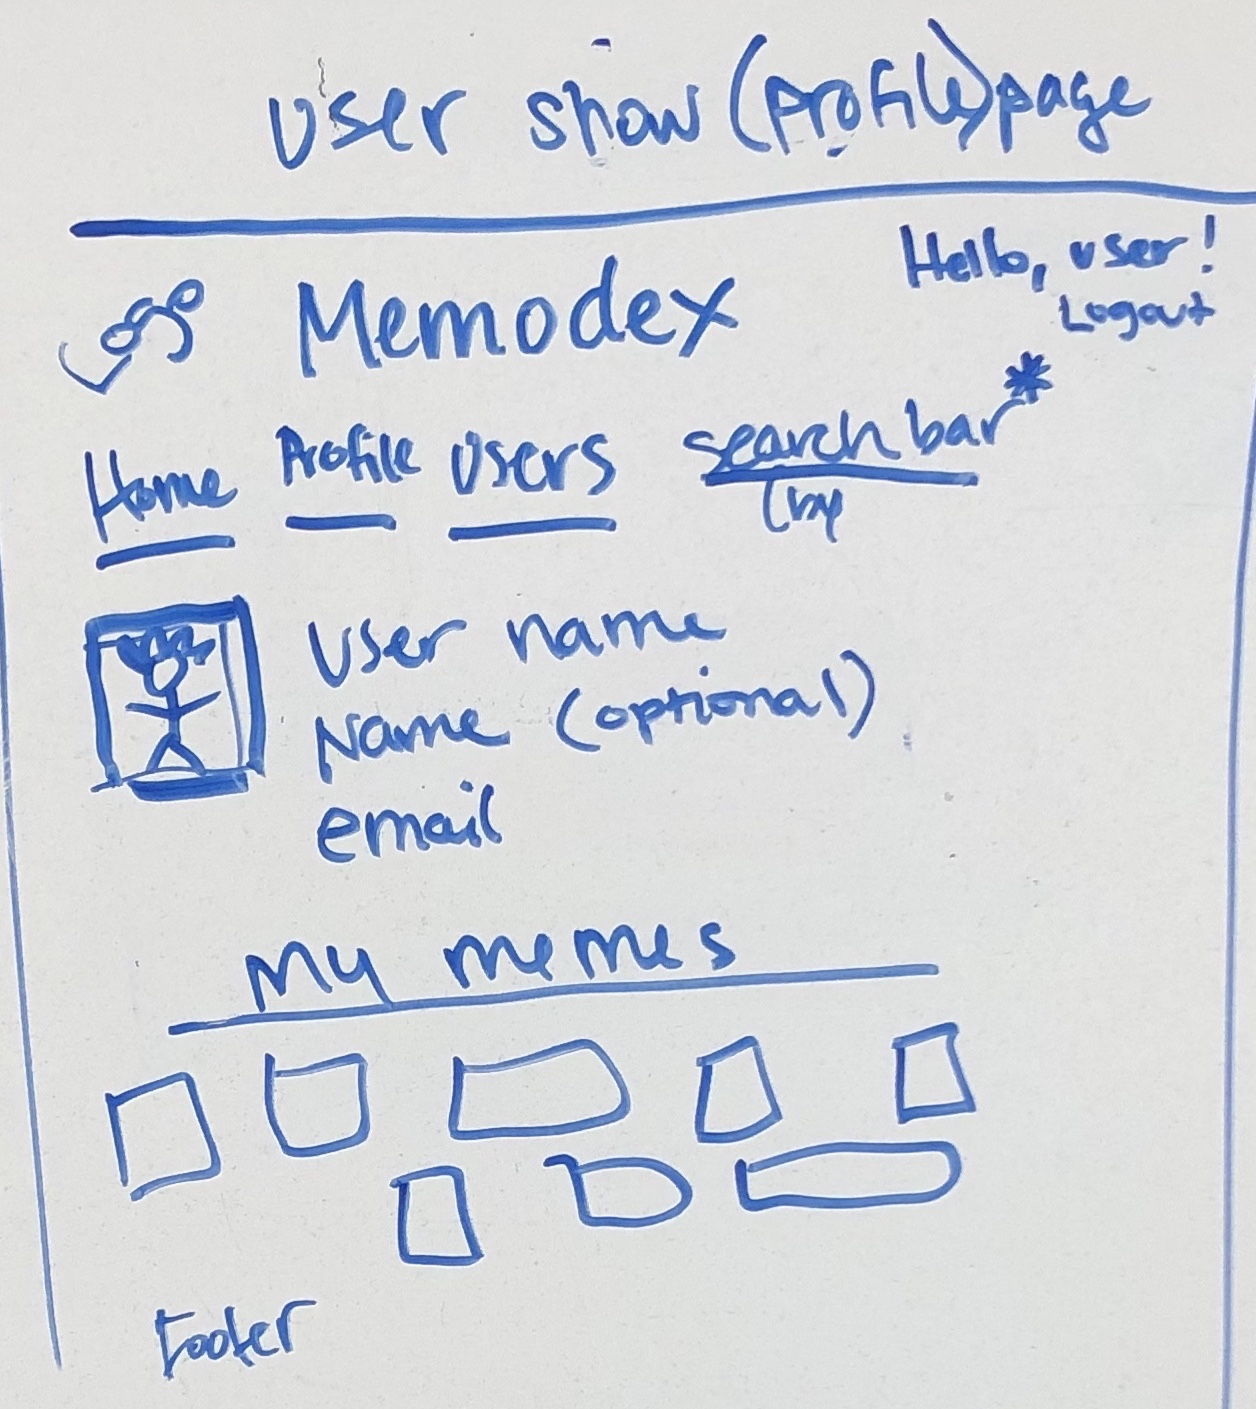 User show (profile) page
Hello, user!
Logout
Memodex
Home Profile Users search bar*
(by
User name
Name (optional)
email
My memes
Footer